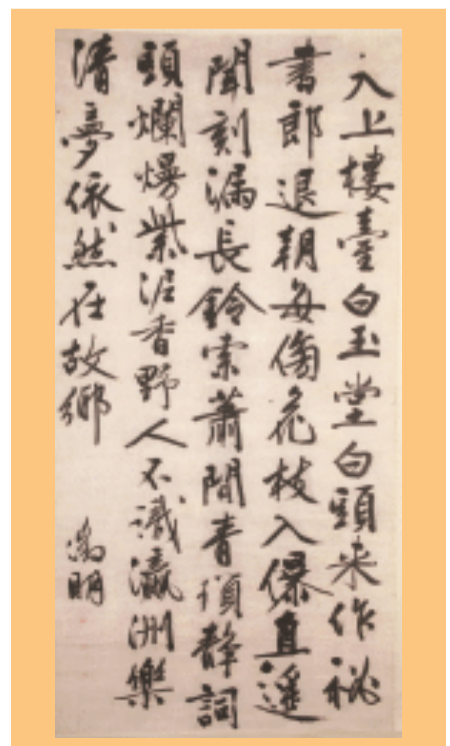 天上樓臺白玉堂白頭来作秘
書郎退朝每傍花枝入儤直遥
聞刻漏長鈴索蕭閒青瑣静詞
頭爛熳紫泥香野人不識瀛洲樂
清夢依然在故鄉
徵明